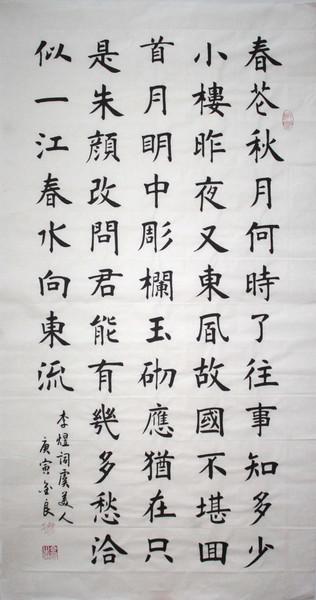 春花秋月何時了往事知多少
小樓昨夜又東風故國不堪回
首月明中彫欄玉砌應猶在只
是朱顏改問君能有幾多愁洽
似一江春水向東流
李煜詞虞美人
庚寅金良